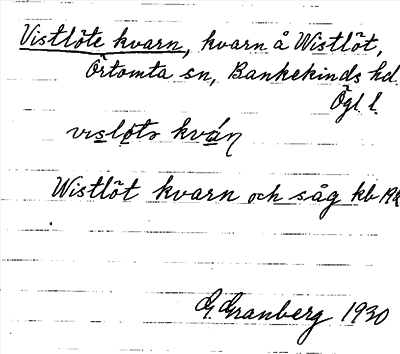 Vistlöte kvarn, kvarn å Wistlöt,
Örtomta sn, Bankekinds hd.
Ögl l.
visløts kván
Wistlöt kvarn och såg kb
G. Granberg 1930